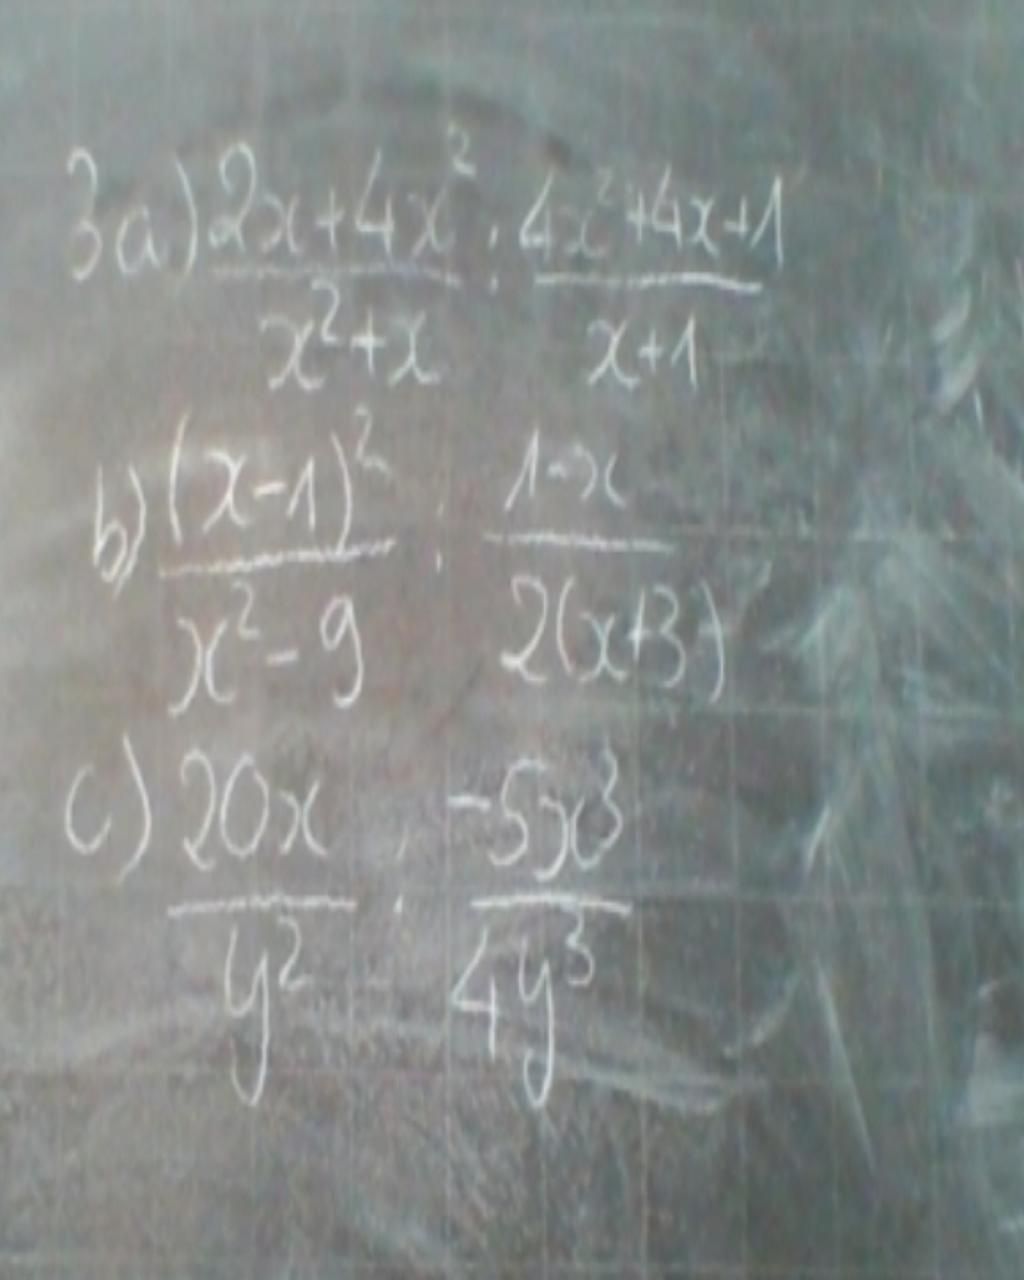 3a) (2x+4x²)/(x²+x) : (4x²+4x+1)/(x+1)
b) (x-1)²/(x²-9) : (1-x)/(2(x+3))
c) 20x/y² : -5x³/4y³